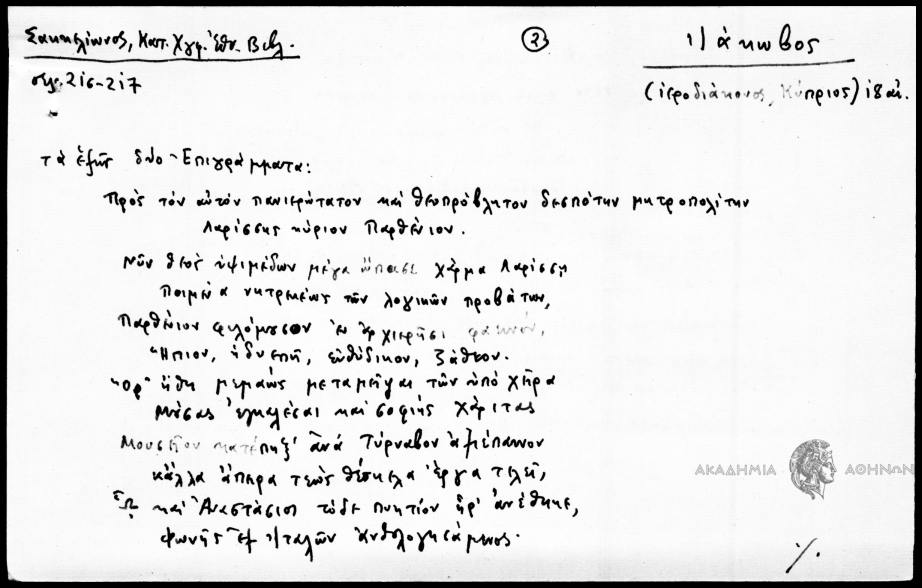 Σακκελίωνος, Κατ. Χγφ. Ἐθν. Βιβλ.
②
Ἰάκωβος
σελ. 216-217
(ἱεροδιάκονος, Κύπριος) 18 αἰ.
τὰ ἑξῆς δύο Ἐπιγράμματα:
Πρὸς τὸν αὐτὸν πανιερώτατον καὶ θεοπρόβλητον δεσπότην μητροπολίτην
Λαρίσσης κύριον Παρθένιον.
Νῦν θεὸς ὑψιμέδων μέγα ὤπασε χάρμα Λαρίσσῃ
ποιμένα νητρεκέως τῶν λογικῶν προβάτων,
Παρθένιον φιλόμουσον ἐν ἀρχιερῆσι φαεινόν,
Ἤπιον, ἡδυεπῆ, εὐθύδικον, ζάθεον.
Ὅρ' ἤθη μεμαὼς μεταμεῖψαι τῶν ὑπὸ χῆρα
Μούσας ἐγκαλέσαι καὶ σοφίης χάριτας
Μουσεῖον κατέπηξ' ἀνὰ Τύρναβον ἀξιέπαινον
κἄλλα ἄπειρα τεῶς θέσκελα ἔργα τελεῖ,
ᾯ καὶ Ἀναστάσιος τόδε πυκτίον ἦρ' ἀνέθηκε,
φωνῆς ἐξ Ἰταλῶν ἀνθολογησάμενος.
ΑΚΑΔΗΜΙΑ ΑΘΗΝΩΝ
./.